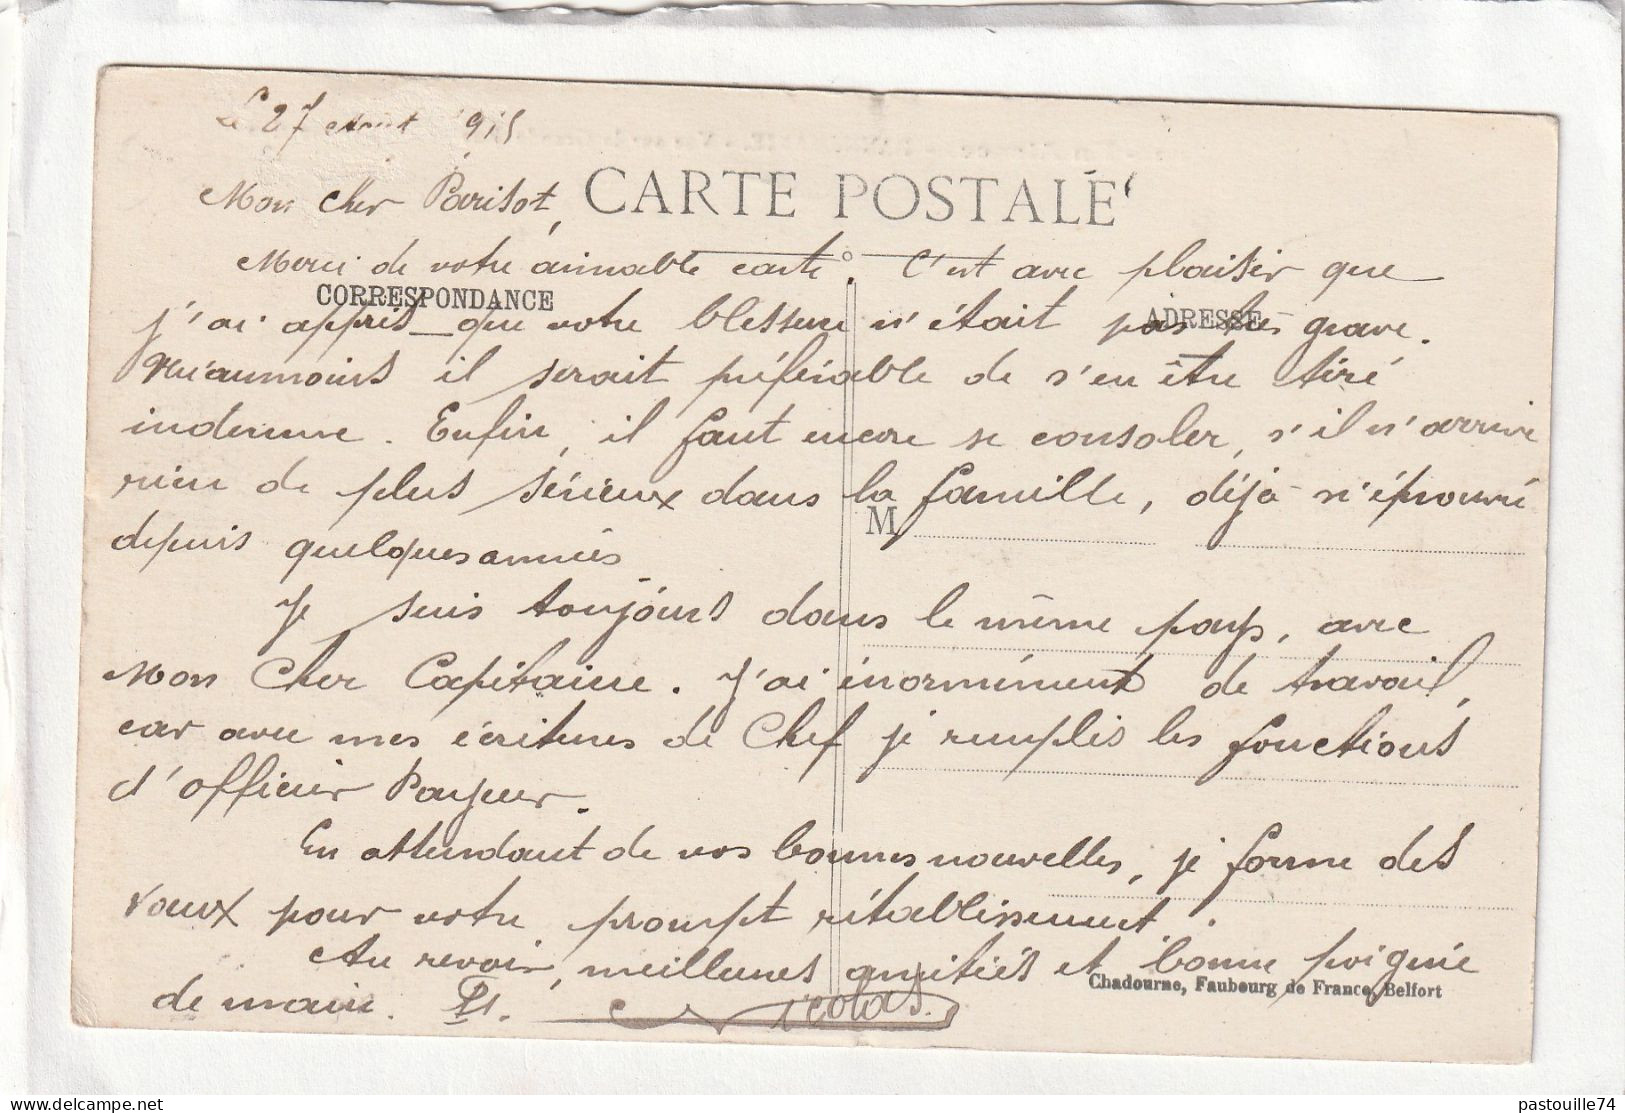 Le 27 Août 1915
Mon cher Parisot,
CARTE POSTALE
Merci de votre aimable carte. C'est avec plaisir que
CORRESPONDANCE
ADRESSE
j'ai appris que votre blessure n'était pas très grave.
Néaumoins il serait préférable de s'en être tiré
indemne. Enfin, il faut encore se consoler, s'il n'arrive
rien de plus sérieux dans la famille, déjà si éprouvée
M
depuis quelques années
Je suis toujours dans le même pays, avec
Mon Cher Capitaine. J'ai énormément de travail,
car avec mes écritures de Chef je remplis les fonctions
d'officier Payeur.
En attendant de vos bonnes nouvelles, je forme des
vœux pour votre prompt rétablissement.
Au revoir, meilleures amitiés et bonne poignée
Chadourne, Faubourg de France, Belfort
de main. Nicolas
pastouille74